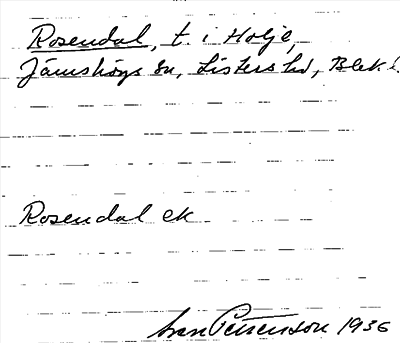 Rosendal, t. i Holje,
Jämshögs sn, Listers hd, Blek. l.
Rosendal ek
Ivan Pettersson 1936